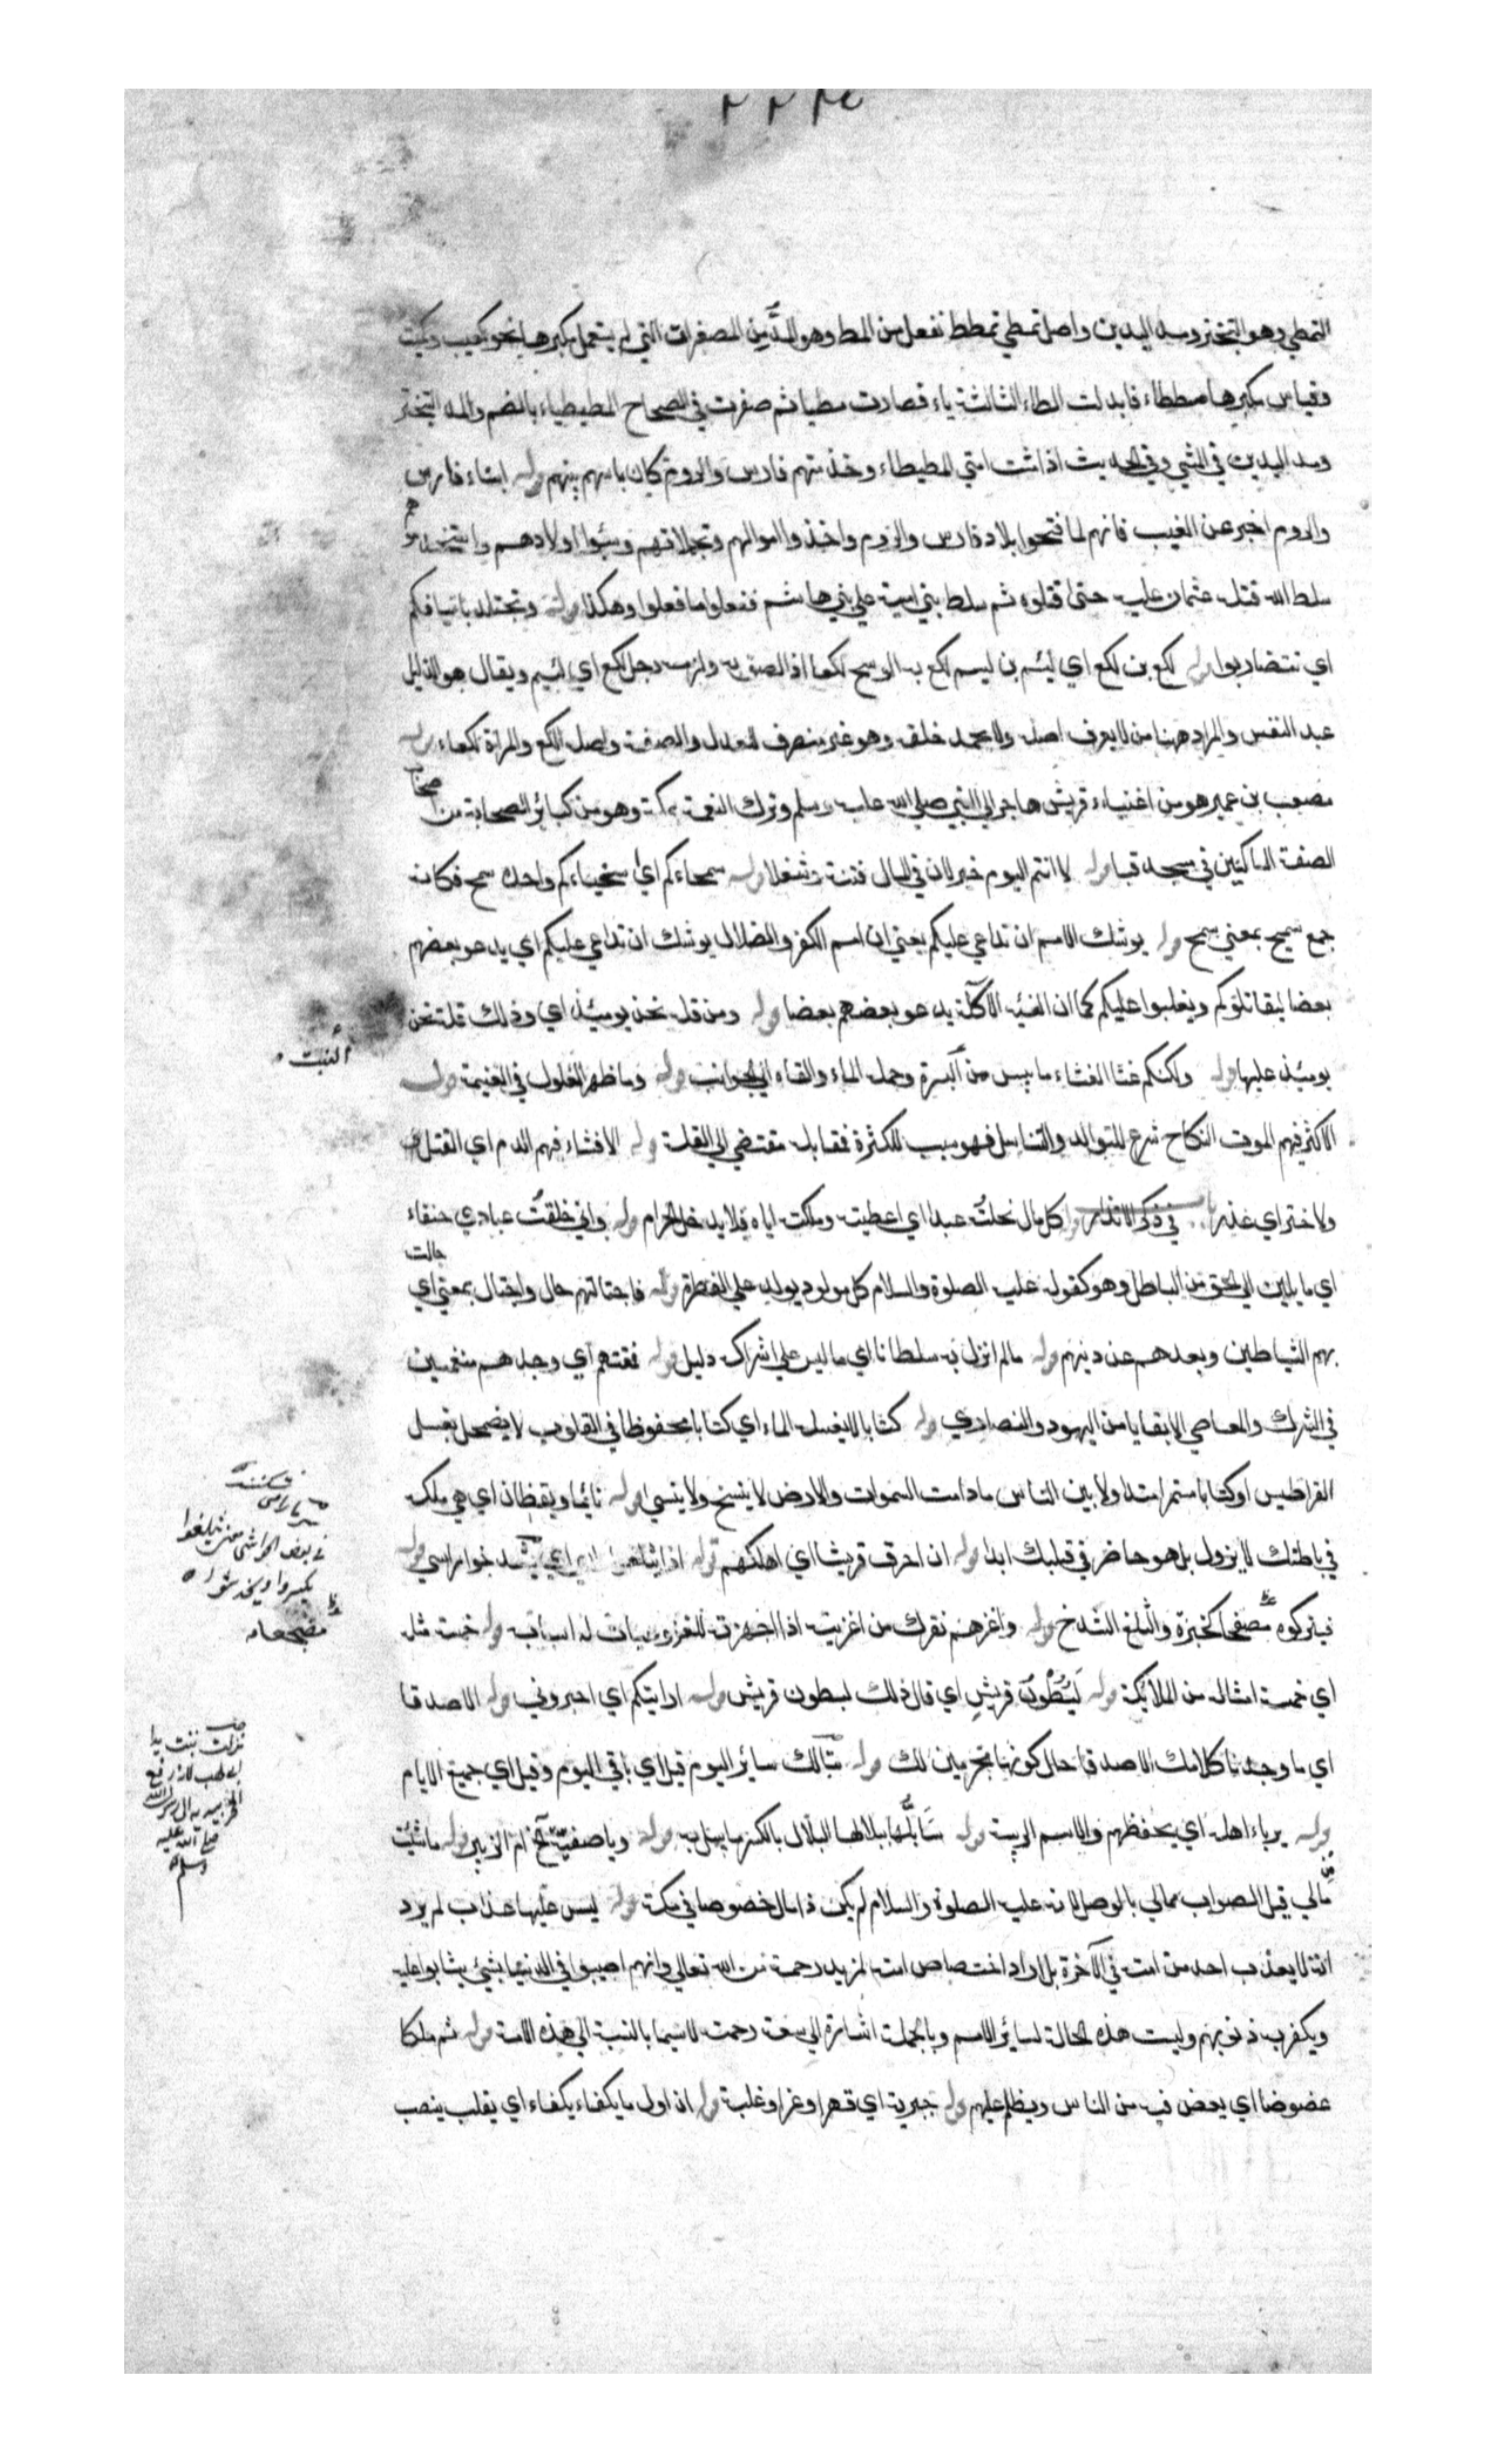 التمطي وهو التبختر ومد اليدين واصل تمطي تمطط تفعل من المط وهو المدّ من المصغرات التي لم يستعمل مكبرها نحو كعيب وكميت
وقياس مكبرها مططاء فابدلت الطاء الثالثة ياء فصارت مطيا ثم صغرت في الصحاح المطيطياء بالضم والمد التبختر
ومد اليدين في المشي وفي الحديث اذا مشت امتي المطيطاء وخدمتهم فارس والروم كان باسهم بينهم قوله ابناء فارس
والروم اخبر عن الغيب فانهم لما فتحوا بلاد فارس والروم واخذوا اموالهم وتجملاتهم وسبوا اولادهم واستخدموهم
سلط الله قتلة عثمان عليه حتى قتلوه ثم سلط بني امية علي بني هاشم ففعلوا ما فعلوا وهكذا قوله وتجتلدوا باسيافكم
اي تتضاربوا قوله لكع بن لكع اي لئيم بن لئيم لكع به الوسخ لكعا اذا لصق به ولزمه رجل لكع اي لئيم ويقال هو الذليل
عبد النفس والمراد ههنا من لا يعرف اصله ولا يحمد خلقه وهو غير منصرف للعدل والصفة واصله الكع والمراة لكعاء قوله
مصعب بن عمير هو من اغنياء قريش هاجر الي النبي صلي الله عليه وسلم وترك النعمة بمكة وهو من كبائر الصحابة من اصحاب
الصفة الساكنين في مسجد قبا قوله لا انتم اليوم خير لان في المال فتنة وشغلا قوله سمحاءكم اي سخيناءكم واحده سمح فكانه
جمع سميح بمعني سمح قوله يوشك الامم ان تداعي عليكم يعني ان امم الكفر والضلال يوشك ان تداعي عليكم اي يدعو بعضهم
بعضا ليقاتلوكم ويغلبوا عليكم كما ان الفئة الآكلة يدعو بعضهم بعضا قوله ومن قلة نحن يومئذ اي وذلك قلة نحن
يومئذ عليها قوله ولكنكم غثا الغثاء ما يبس من وحمله الماء والقاه الي الجوانب قوله وما ظهر الغلول في الغنيمة قوله
النبت
الا كثر فيهم الموت النكاح شرع للتوالد والتناسل فهو سبب للكثرة فمقابله مقتضي الي القلة قوله الا فشاء فيهم الدم اي القتل
ولا ختر اي غدر باب في ذكر الانذار قوله كل مال نحلتُه عبدا اي اعطيته وملكته اياه فلا يدخل الحرام قوله واني خلقتُ عبادي حنفاء
اي مايلين الي الحق من الباطل وهو كقوله عليه الصلوة والسلام كل مولود يولد علي الفطرة قوله فاجتالتهم جال واجتال بمعني اي جالت
بهم الشياطين وبعدهم عن دينهم قوله ما لم انزل به سلطانا اي ما ليس علي اشراكه دليل قوله فمقتهم اي وجدهم منغمسين
في الشرك والمعاصي الا بقايا من اليهود والنصاري قوله كتابا لا يغسله الماء اي كتابا محفوظا في القلوب لا يضمحل بغسل
القراطيس او كتابا مستمرا متداولا بين الناس ما دامت السموات والارض لا ينسخ ولا ينسي قوله نائما ويقظان اي هي ملكة
في باطنك لا يزول بل هو حاضر في قلبك ابدا قوله ان احرق قريشا اي اهلكهم قوله اذا يثلغوا راسي قوله
في بعض الحواشي يثلغوا
يكسروا ويخدشوا
فيتركوه مصفحا كخبزة والثلغ الشدخ قوله واغزهم نغزك من اغزيته اذا جهزته للغزو وهيات له اسبابه قوله خمسة مثله
مضجعا
اي خمسة امثاله من الملائكة قوله لبُطُون قريش اي قال ذلك لبطون قريش قوله ارايتكم اي اخبروني قوله الا صدقا
اي ما وجدنا كلامك الا صدقا حال كوننا مجربين لك قوله تبا لك سائر اليوم قيل اي باقي اليوم وقيل اي جميع الايام
قوله يرباء اهله اي يحفظهم والاسم الربيئة قوله سَابلُّها ببلالها البلال بالكسر ما يبل به قوله ويا صفيّة ام الزبير قوله ما شئت
من مالي قيل الصواب مما لي بالوصل لانه عليه الصلوة والسلام لم يكن ذا مال خصوصا في مكة قوله ليس عليها عذاب لم يرد
انه لا يعذب احد من امته في الآخرة بل اراد اختصاص امته لمزيد رحمة من الله تعالي وانهم اصيبوا في الدنيا بشيء يثابوا عليه
ويكفر به ذنوبهم وليست هذه الحالة لسائر الامم وبالجملة اشارة الي سعة رحمته لا سيما بالنسبة الي هذه الامة قوله ثم ملكا
عضوضا اي يعض فيه من الناس ويظلم عليهم قوله جبرية اي قهرا وعزا وغلبة قوله ان اول ما يكفاء يكفاء اي يقلب ينصب